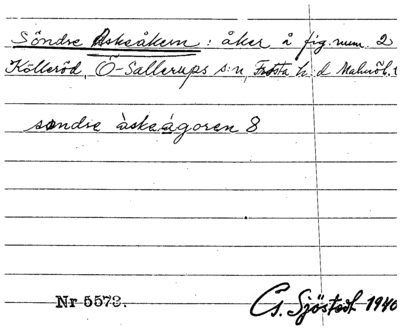 Söndre Askeåkern : åker å fig. num. 2
Kölleröd, Ö-Sallerups s:n, Frosta h:d Malmöh. l
sondre àskeågoren 8
Nr 5573.
G. Sjöstedt 1940